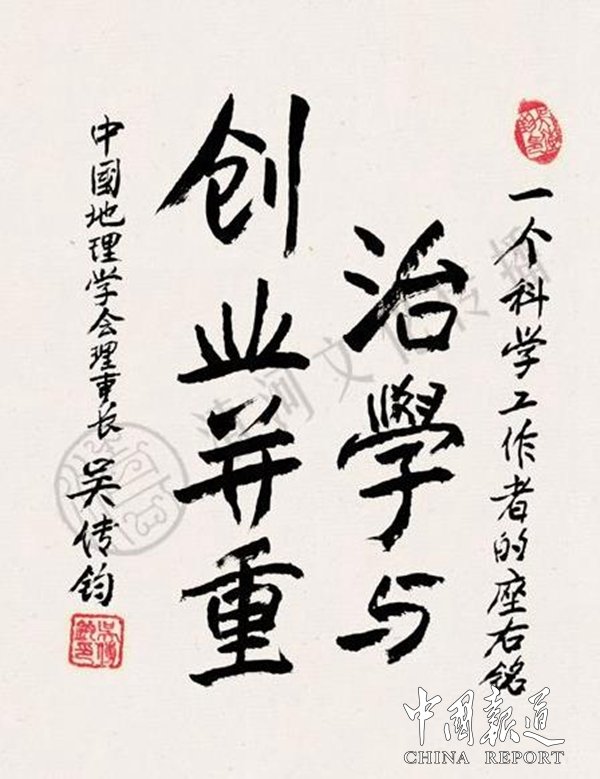 一个科学工作者的座右铭
治學与
创业并重
中國地理学会理事长 吴传钧
清河文化传播
中国報道
CHINA REPORT